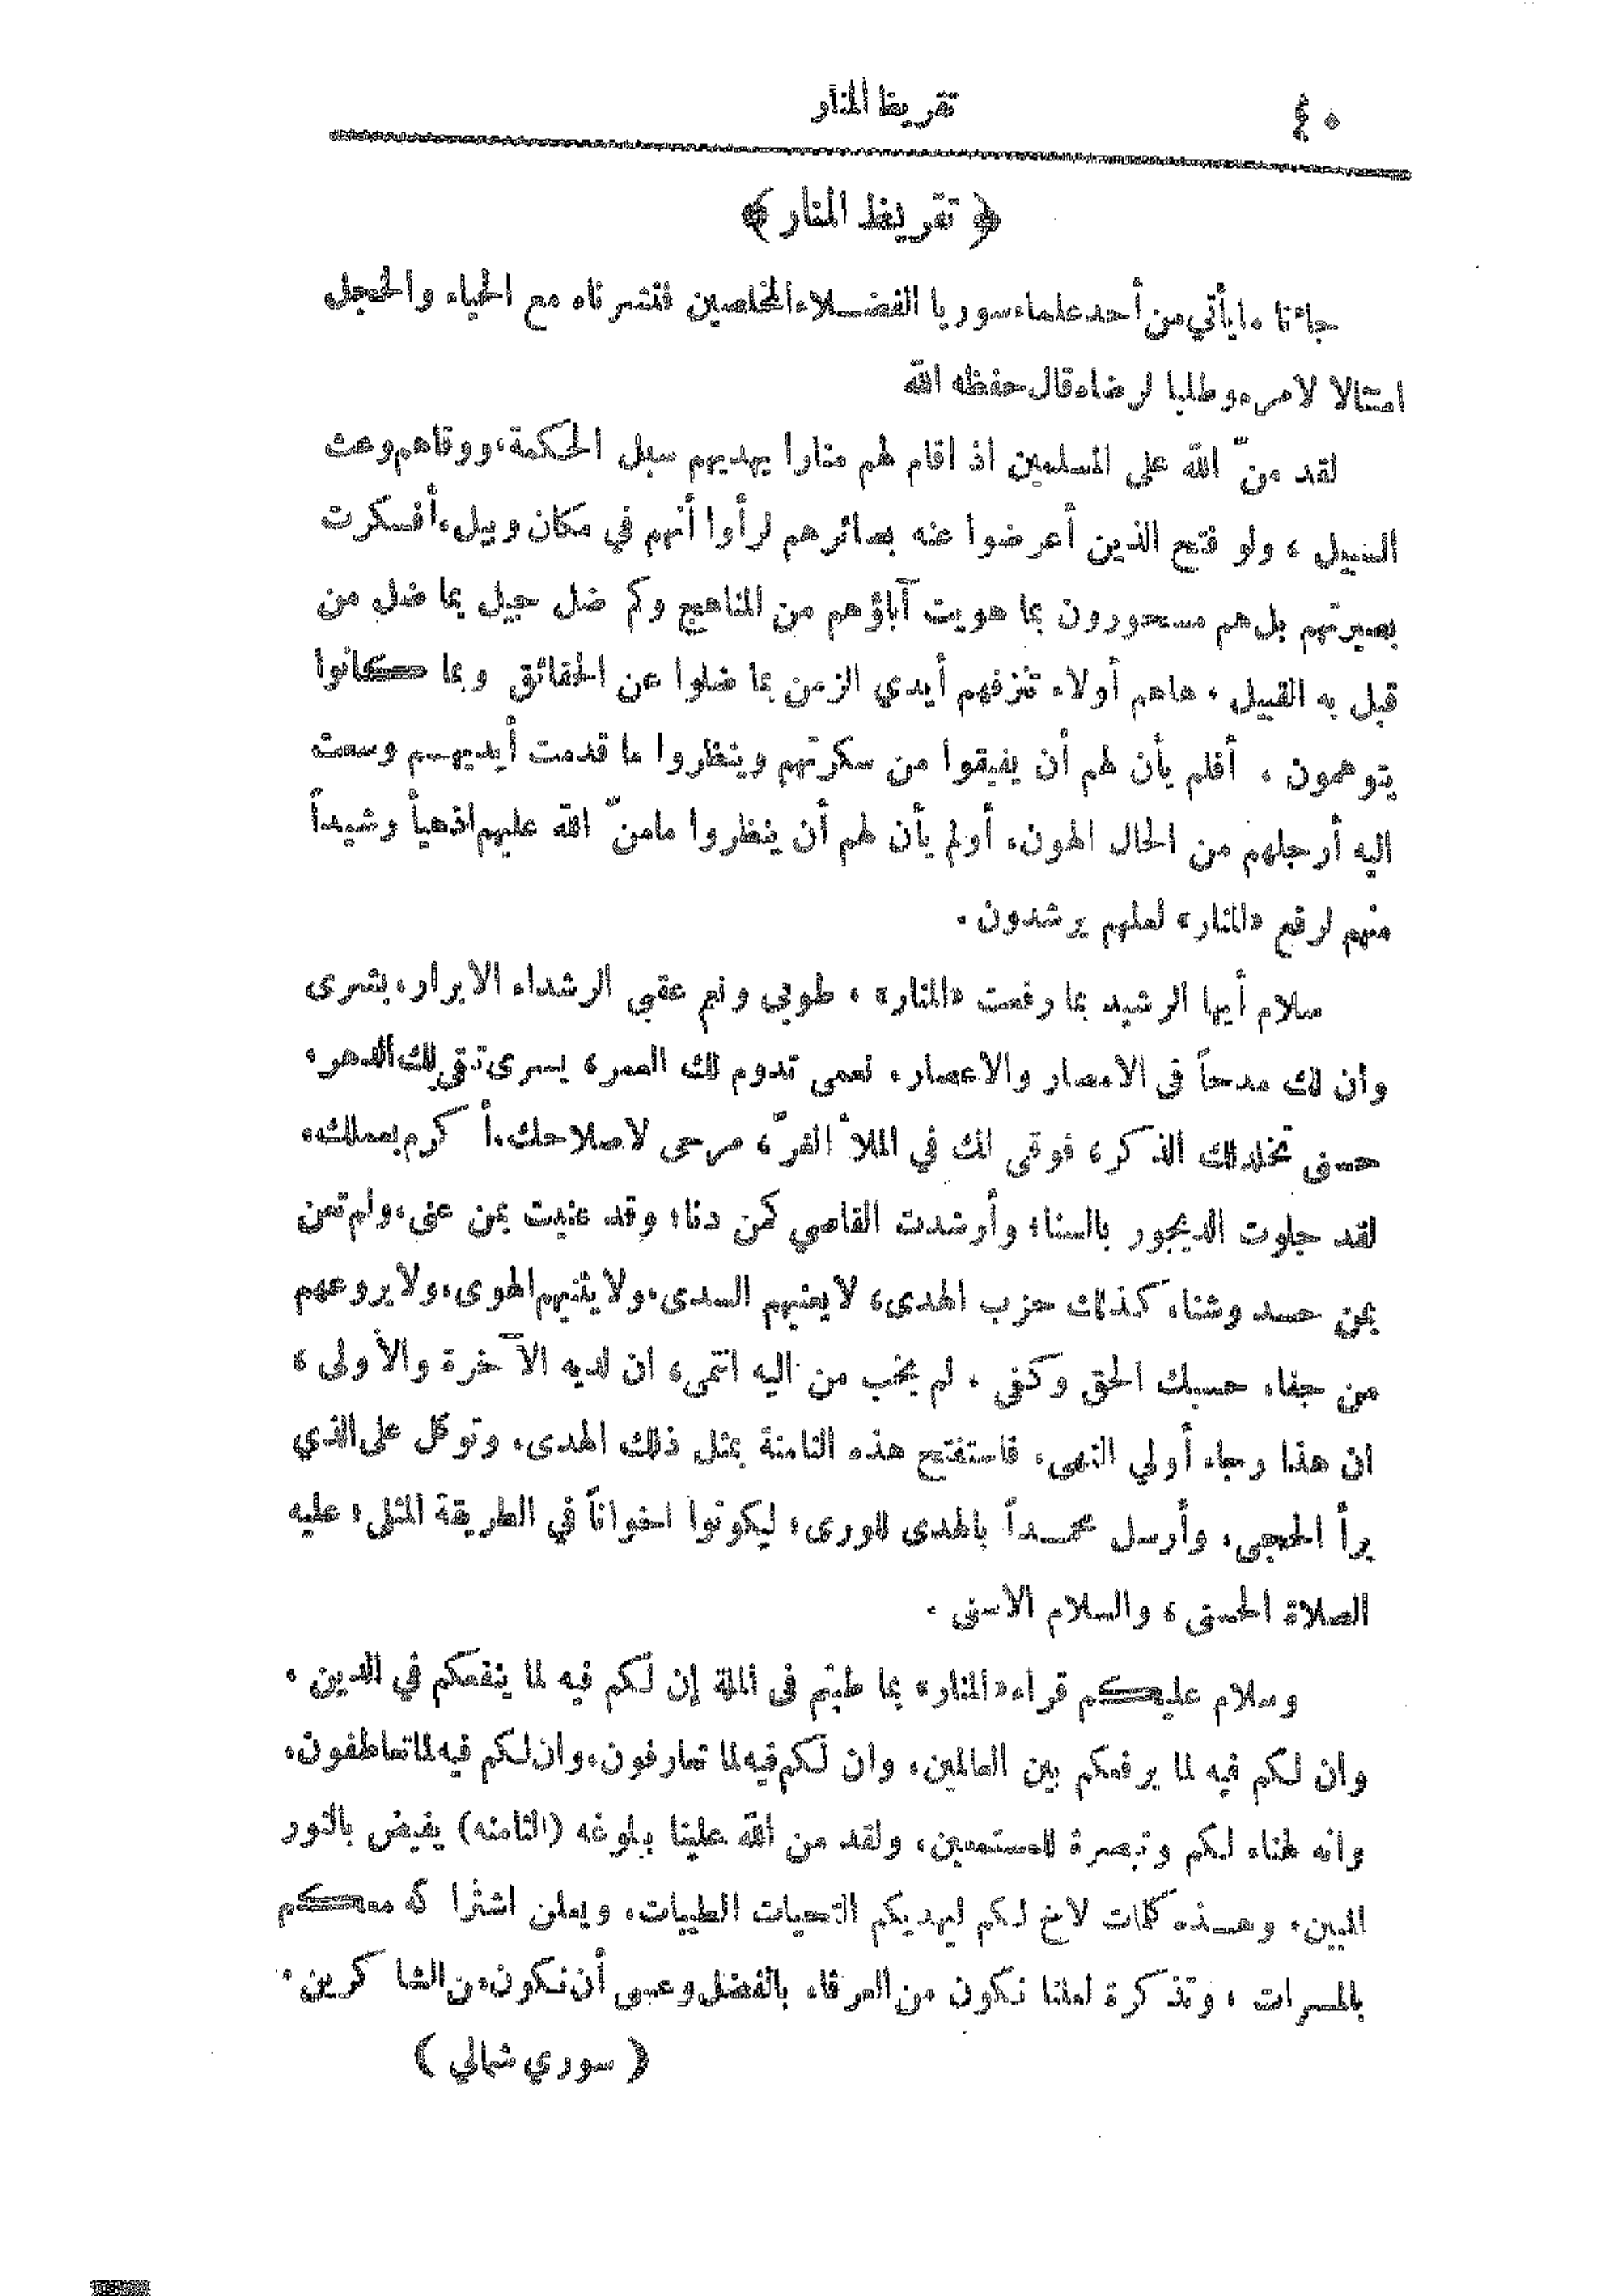 ٤٠ تقريظ المنار
﴿ تقريظ المنار ﴾
جاءنا ما يأتي من أحد علماء سوريا الفضلاء المخلصين فنشرناه مع الحياء والخجل
امتثالا لامره وطلبا لرضاه قال حفظه الله
لقد منّ الله على المسلمين اذ اقام لهم منارا يهديهم سبل الحكمة، ووقاهم وعث
السبيل ، ولو فتح الذين أعرضوا عنه بصائرهم لرأوا أنهم في مكان وبيل، أفسكرت
بصيرتهم بل هم مسحورون بما هويت آباؤهم من المناهيج وكم ضل جيل بما ضل من
قبل به القبيل ، هاهم أولاء تنزفهم أيدي الزمن بما ضلوا عن الحقائق وبما كانوا
يتوهمون . أفلم يأن لهم أن يفيقوا من سكرتهم وينظروا ما قدمت أيديهم وسعت
اليه أرجلهم من الحال الهون، أولم يأن لهم أن ينظروا مامنّ الله عليهم اذ هيأ رشيداً
منهم لرفع «المنار» لعلهم يرشدون .
سلام أيها الرشيد بما رفعت «المنار» ، طوبى ونعم عقبى الرشداء الابرار، بشرى
وان لك مدحاً فى الامصار والاعصار، نعمى تدوم لك العمر، يسرى تقى لك الدهر،
حسنى تخلد لك الذكر، فوقى لك في الملأ الغرّ، مرحى لاصلاحك، أكرم بعملك،
لقد جلوت الديجور بالسنا، وأرشدت القاصي كمن دنا، وقد عنيت بمن عنى، ولم تعن
بمن حسد وشنا، كذلك حزب الهدى، لا يعنيهم السدى، ولا يثنيهم الهوى، ولا يروعهم
من جفا، حسبك الحق وكفى . لم يخب من اليه انتمى، ان لديه الآخرة والأولى ،
ان هذا رجاء أولي النهى، فاستفتح هذه الثامنة بمثل ذلك الهدى، وتوكل على الذي
برأ الحجى، وأرسل محمداً بالهدى للورى، ليكونوا اخواناً في الطريقة المثلى، عليه
الصلاة الحسنى ، والسلام الاسنى .
وسلام عليكم قراء «المنار» بما طبتم فى الملة إن لكم فيه لما ينفعكم في الدين ،
وان لكم فيه لما يرفعكم بين العالمين، وان لكم فيه لما تعارفون، وان لكم فيه لما تعاطفون،
وانه لهناء لكم وتبصرة للمستبصرين، ولقد من الله علينا ببلوغه (الثامنه) يفيض بالنور
المبين، وهذه كلمات لاخ لكم ليهديكم التحيات الطيبات، ويعلن اشتراكه معكم
بالمسرات ، وتذكرة لعلنا نكون من العرفاء بالفضل وعسى أن نكون من الشاكرين .
( سوري شمالي )